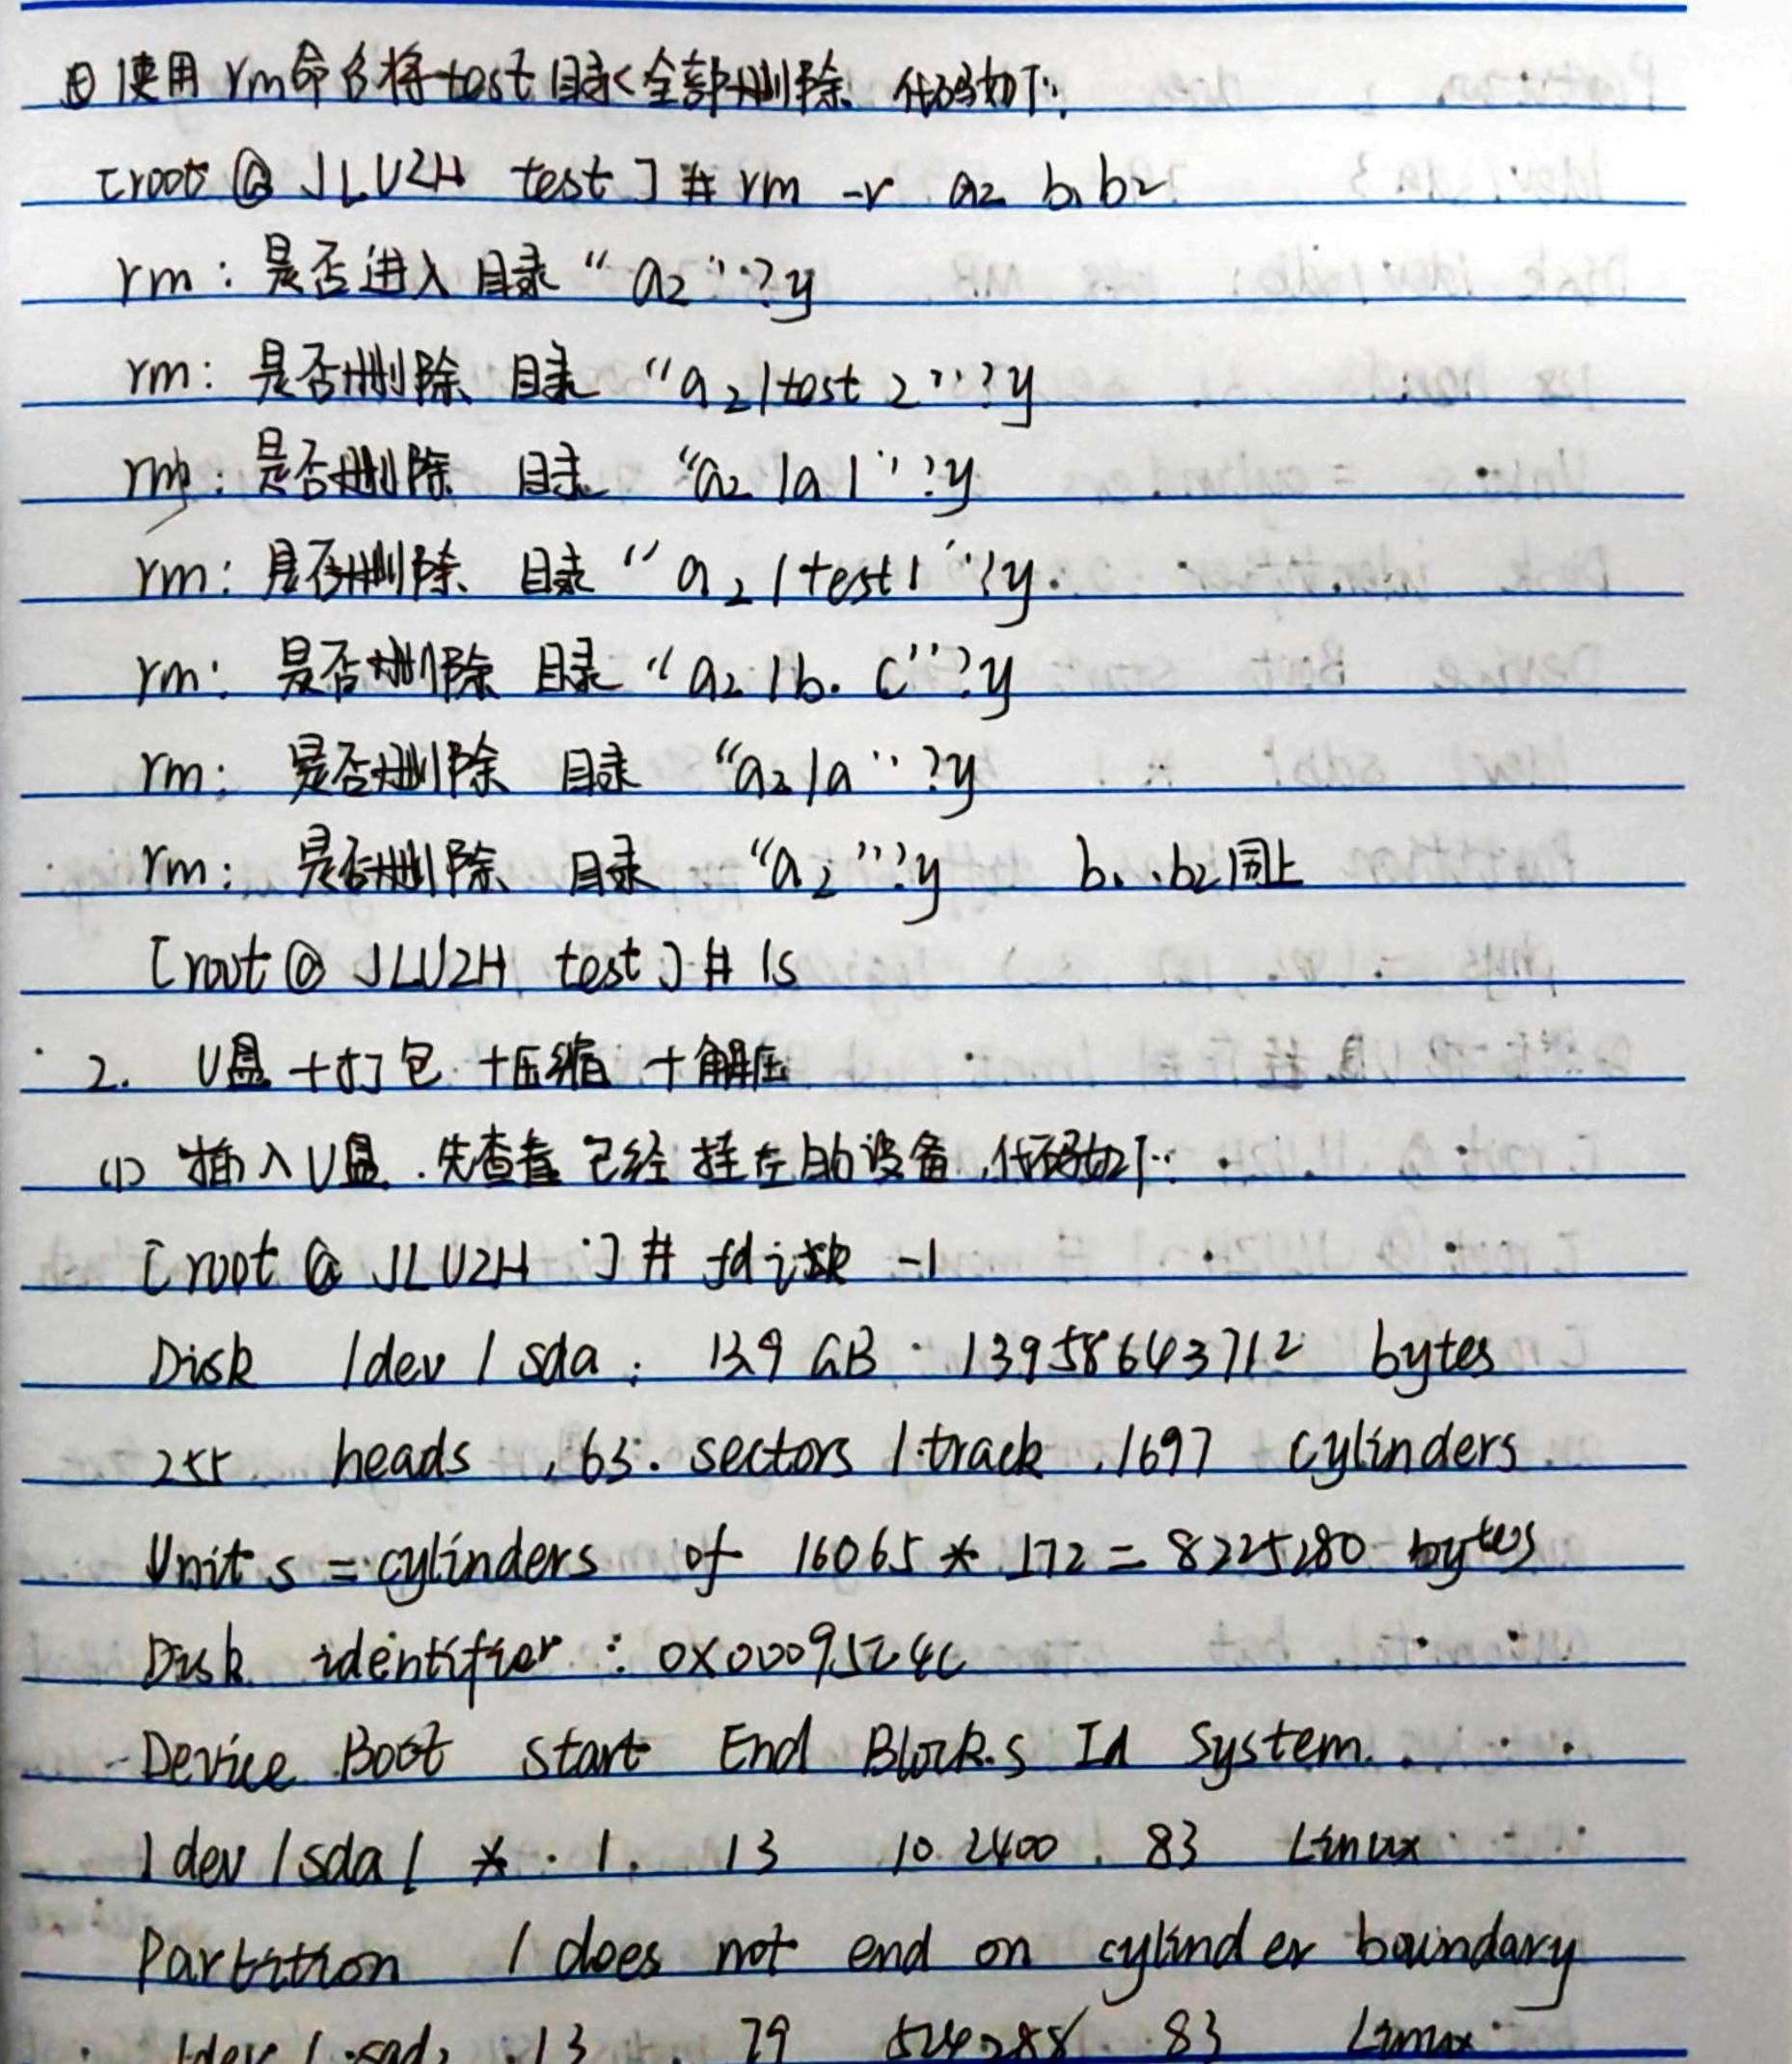 使用rm命令将test目录全部删除 代码如下:
[root@JLUZH test]# rm -r a2 b1 b2
rm:是否进入目录“a2”?y
rm:是否删除 目录“a2/test2”?y
rm:是否删除 目录“a2/a1”?y
rm:是否删除 目录“a2/test1”?y.
rm:是否删除 目录“a2/b.c”?y
rm:是否删除 目录“a2/a”?y
rm:是否删除 目录“a2”?y b1.b2同上
[root@JLUZH test]# ls
2. U盘+打包+压缩+解压
(1) 插入U盘.先查看已经挂在的设备,代码如下:
[root@JLUZH ]# fdisk -l
Disk /dev/sda: 13.9 GB 13958643712 bytes
255 heads, 63 sectors/track, 1697 cylinders
Units = cylinders of 16065 * 172 = 8225280 bytes
Disk identifier: 0x0009524c
Device Boot Start End Blocks Id System
/dev/sda1 * 1 13 102400 83 Linux
Partition 1 does not end on cylinder boundary
/dev/sad2 13 79 524288 83 Linux